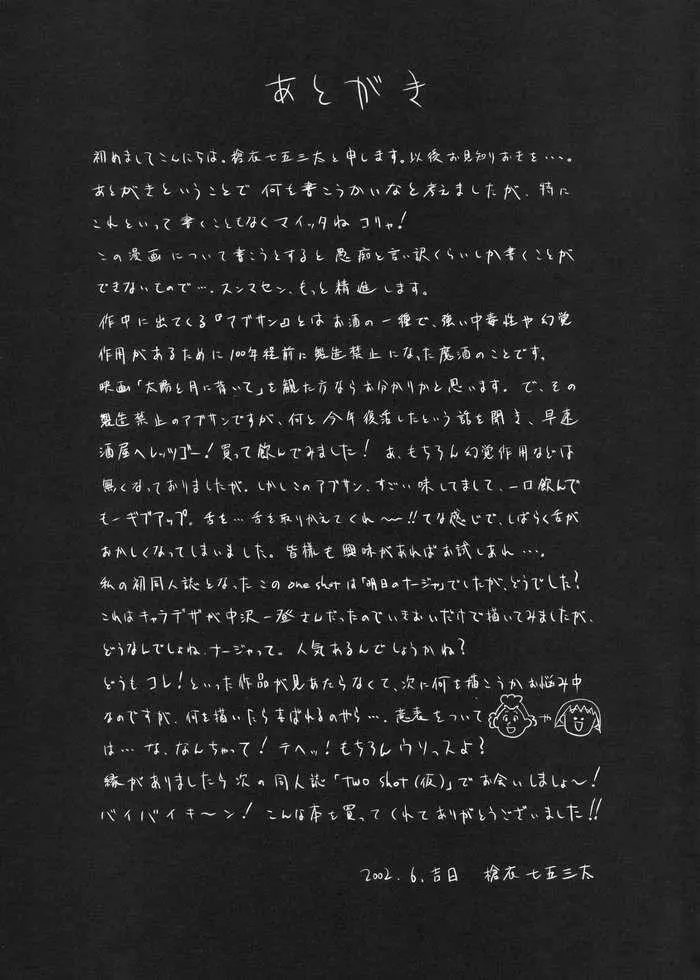 あとがき
初めましてこんにちは。槍衣七五三太と申します。以後お見知りおきを…。
あとがきということで何を書こうかいなと考えましたが、特に
これといって書くこともなくマイッタねコリャ!
この漫画について書こうとすると愚痴と言い訳くらいしか書くことが
できないもので…。スンマセン、もっと精進します。
作中に出てくる『アブサン』とはお酒の一種で、強い中毒性や幻覚
作用があるために100年程前に製造禁止になった魔酒のことです。
映画「太陽と月に背いて」を観た方ならお分かりかと思います。で、その
製造禁止のアブサンですが、何と今年復活したという話を聞き、早速
酒屋へレッツゴー!買って飲んでみました!あ、もちろん幻覚作用などは
無くなっておりましたが。しかしこのアブサン、すごい味してまして、一口飲んで
もーギブアップ。舌を…舌を取りかえてくれ〜〜!!てな感じで、しばらく舌が
おかしくなってしまいました。皆様も興味があればお試しあれ…。
私の初同人誌となったこのone shotは「明日のナージャ」でしたが、どうでした?
これはキャラデザが中沢一登さんだったのでいきおいだけで描いてみましたが、
どうなんでしょね、ナージャって。人気あるんでしょうかね?
どうもコレ!といった作品が見あたらなくて、次に何を描こうかお悩み中
なのですが、何を描いたら喜ばれるのやら…。意表をついて や
は…な、なんちゃって!テヘッ!もちろんウリッスよ?
縁がありましたら次の同人誌「two shot(仮)」でお会いしましょ〜!
バイバイキ〜ン!こんな本を買ってくれてありがとうございました!!
2002.6.吉日 槍衣七五三太